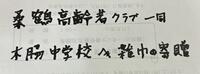 桑鶴高齢者クラブ一同
本脇中学校へ雑巾寄贈